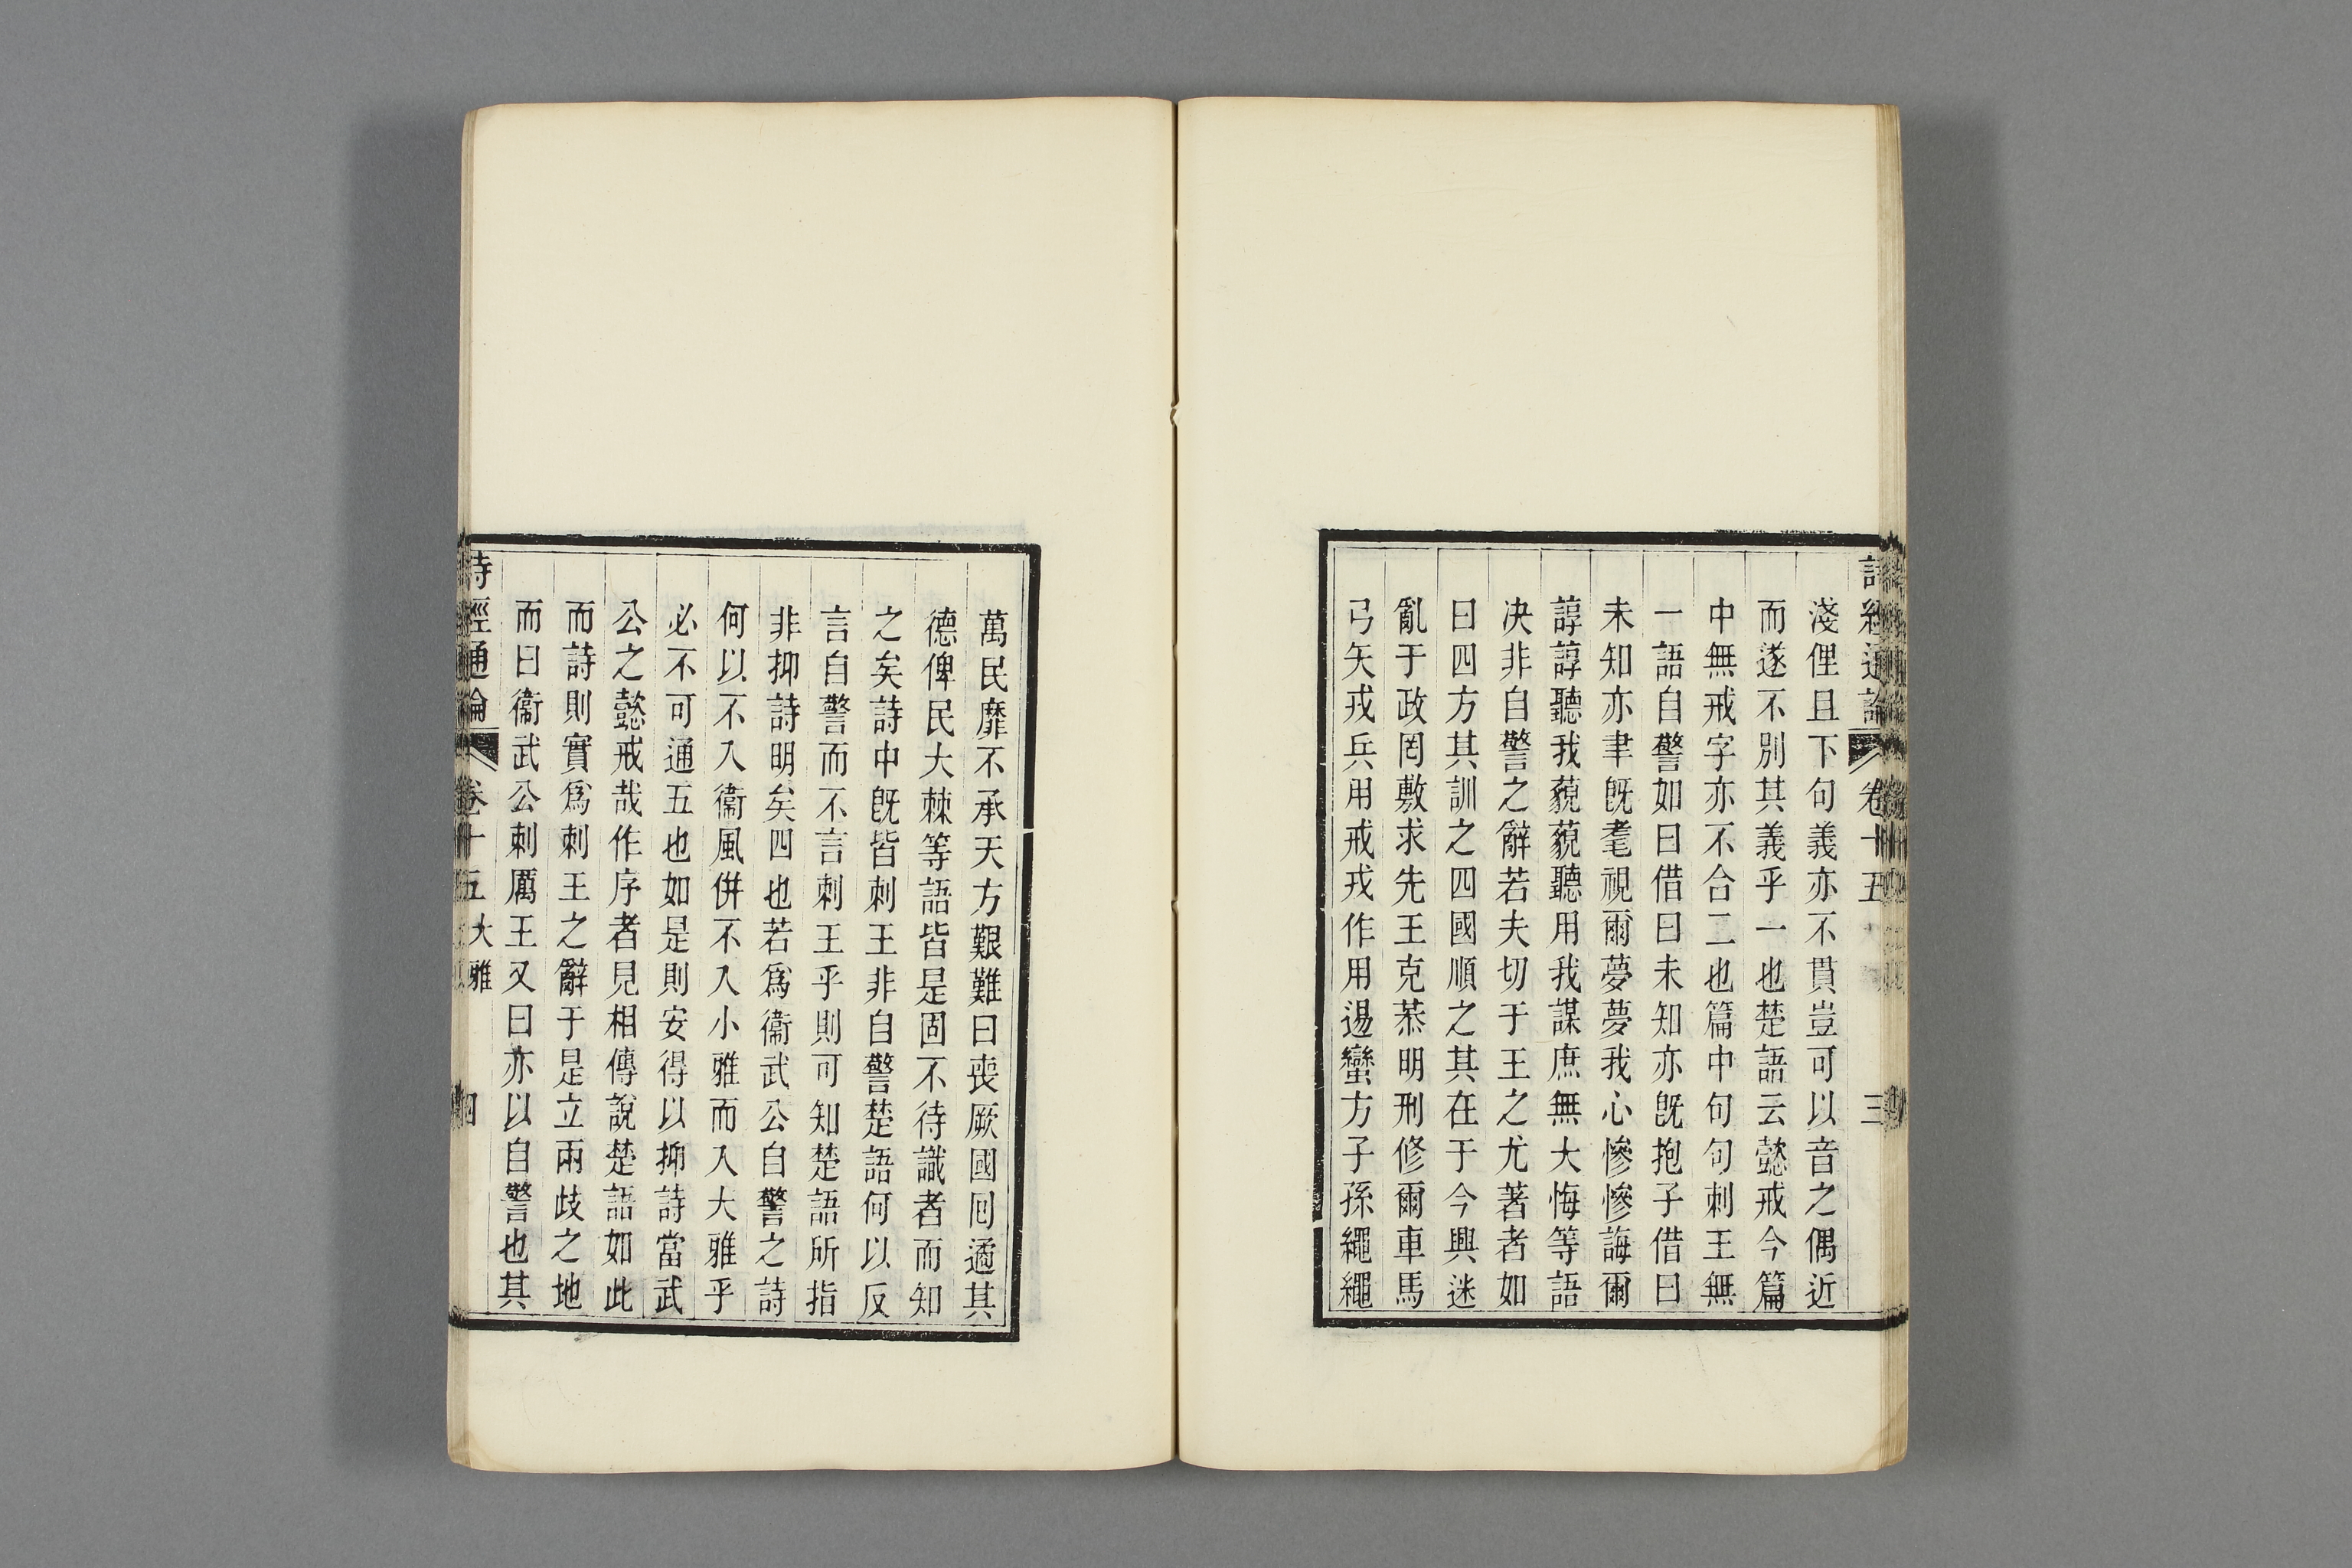 詩經通論 卷十五 三
淺俚且下句義亦不貫豈可以音之偶近
而遂不別其義乎一也楚語云懿戒今篇
中無戒字亦不合二也篇中句句刺王無
一語自警如曰借曰未知亦旣抱子借曰
未知亦聿旣耄視爾夢夢我心慘慘誨爾
諄諄聽我藐藐聽用我謀庶無大悔等語
决非自警之辭若夫切于王之尤著者如
曰四方其訓之四國順之其在于今興迷
亂于政罔敷求先王克恭明刑修爾車馬
弓矢戎兵用戒戎作用逷蠻方子孫繩繩
萬民靡不承天方艱難曰喪厥國囘遹其
德俾民大棘等語皆是固不待識者而知
之矣詩中旣皆刺王非自警楚語何以反
言自警而不言刺王乎則可知楚語所指
非抑詩明矣四也若爲衞武公自警之詩
何以不入衞風倂不入小雅而入大雅乎
必不可通五也如是則安得以抑詩當武
公之懿戒哉作序者見相傳說楚語如此
而詩則實爲刺王之辭于是立兩歧之地
而曰衞武公刺厲王又曰亦以自警也其
詩經通論 卷十五 大雅 四